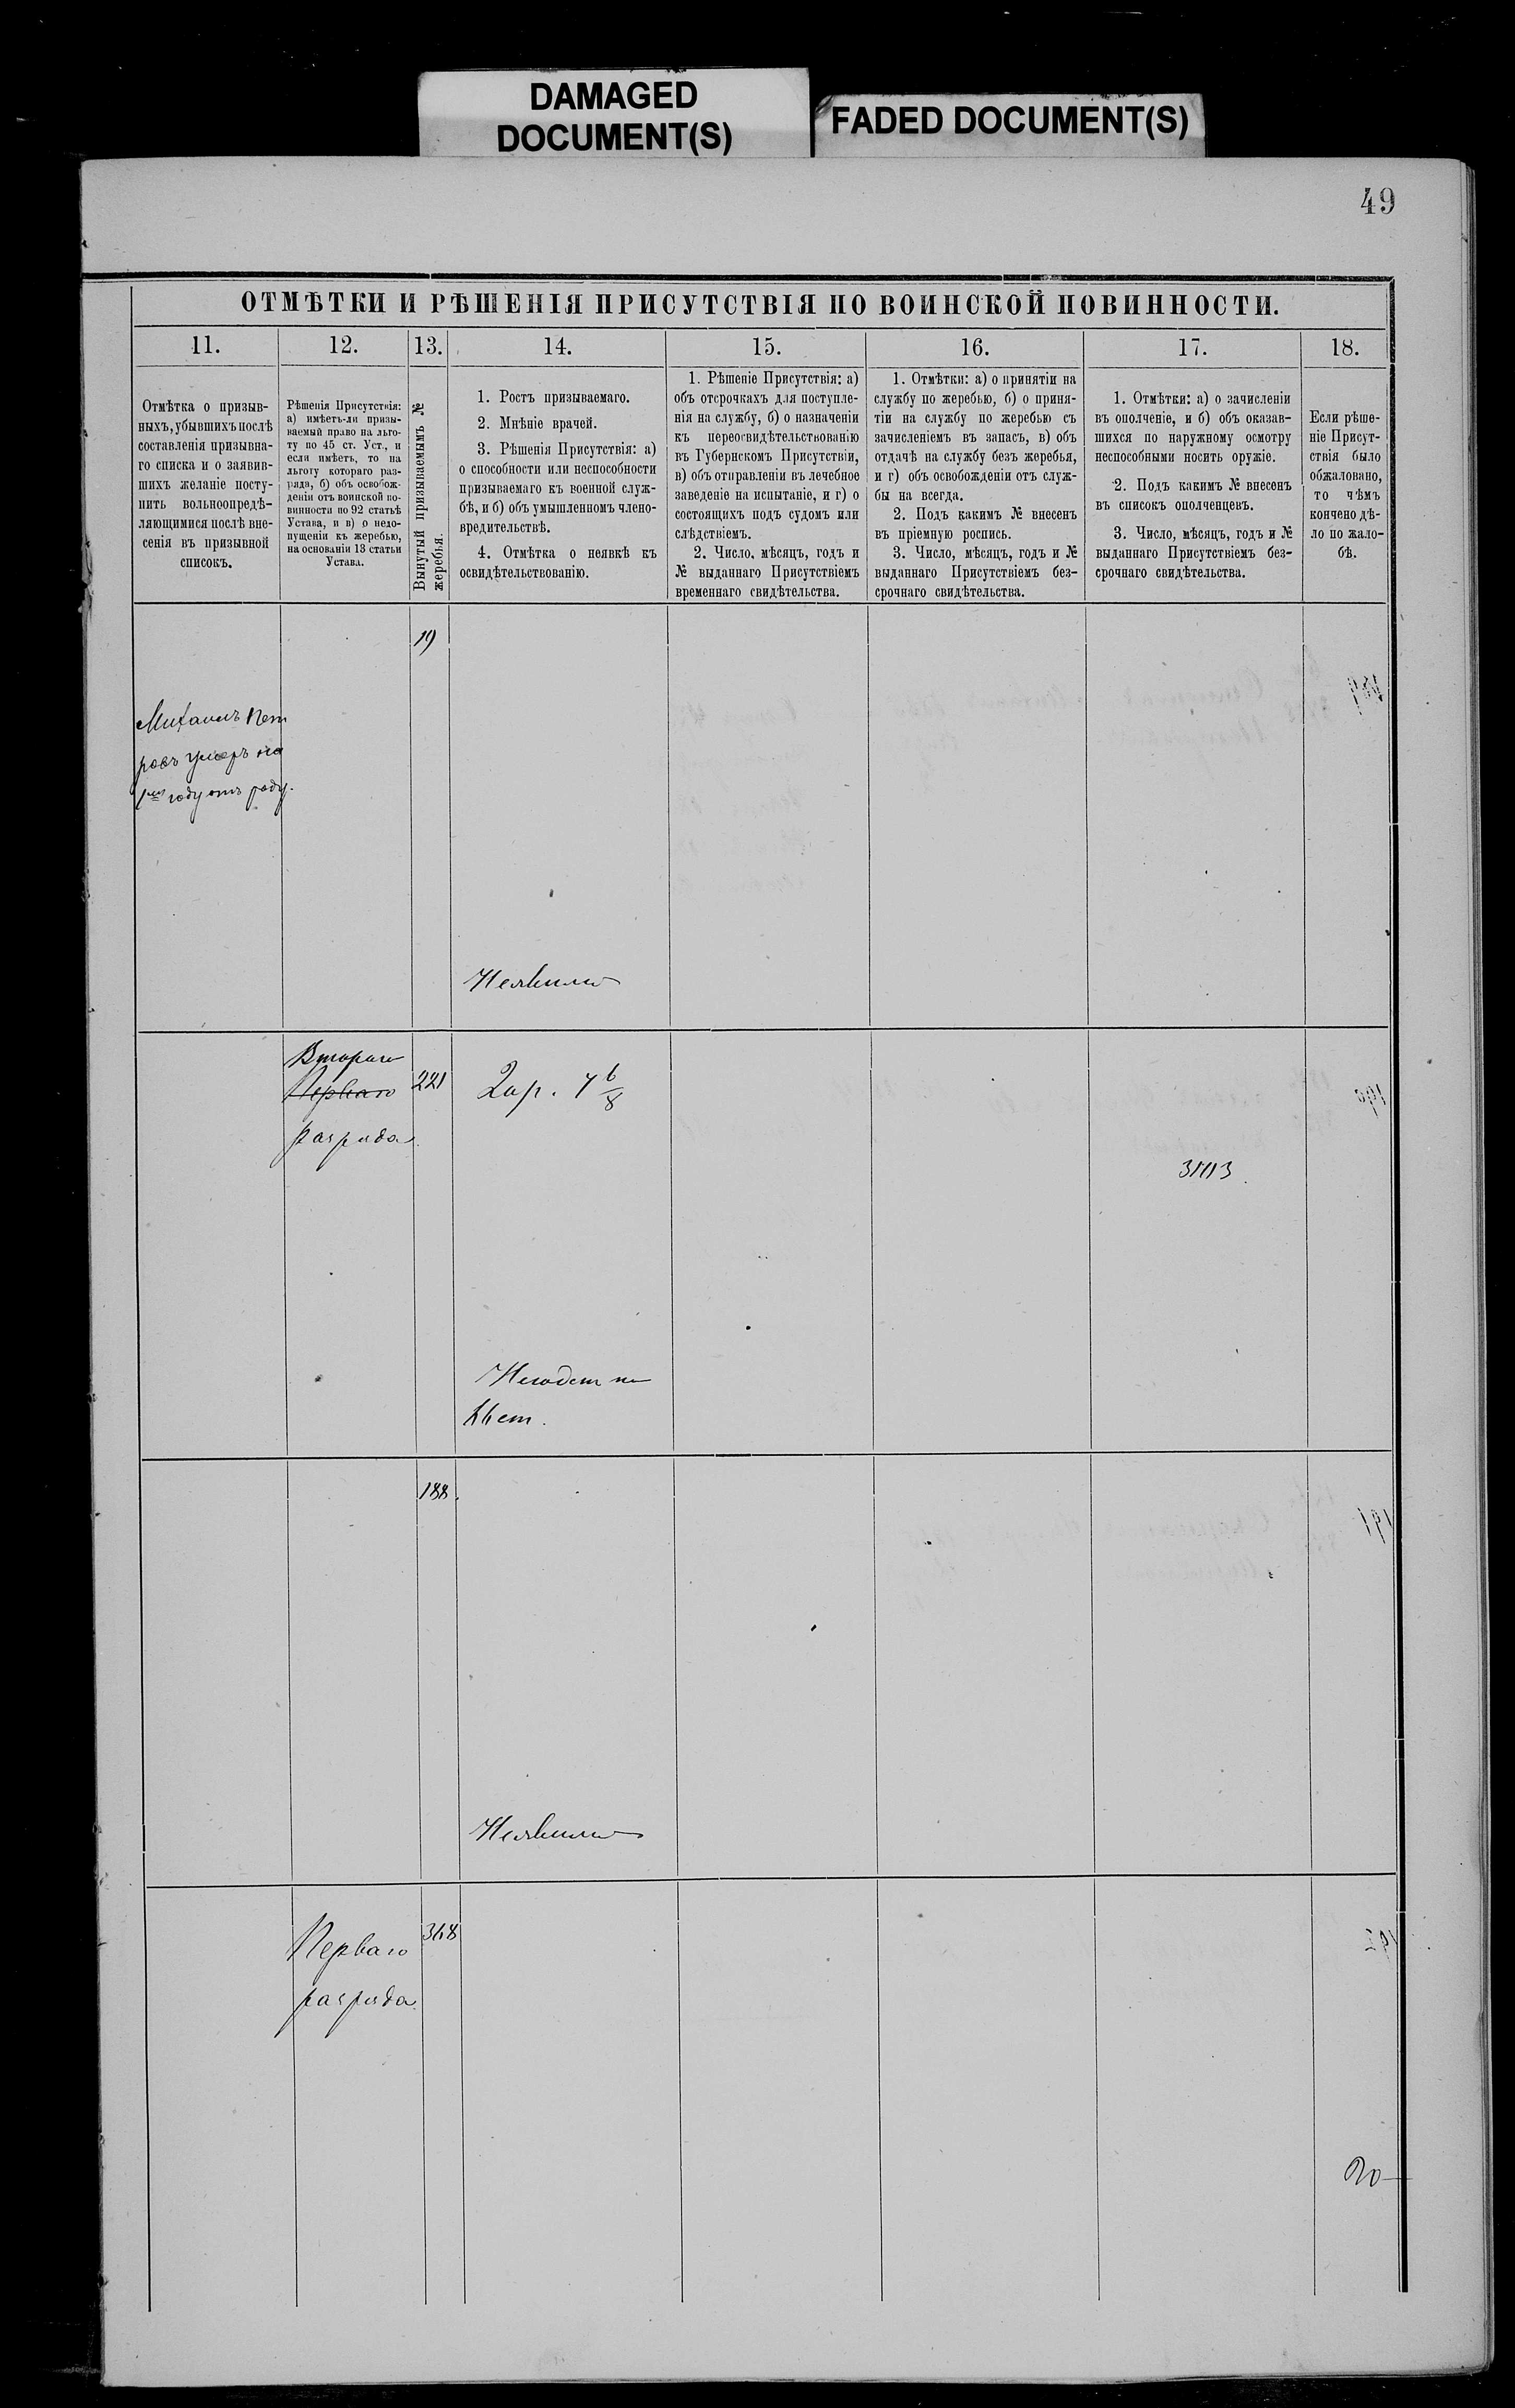 DAMAGED
DOCUMENT(S)
FADED DOCUMENT(S)
49
ОТМѢТКИ И РѢШЕНІЯ ПРИСУТСТВІЯ ПО ВОИНСКОЙ ПОВИННОСТИ.
11.
12.
13.
14.
15.
16.
17.
18.
Отмѣтка о призыв-
ныхъ, убывшихъ послѣ
составленія призывна-
го списка и о заявив-
шихъ желаніе посту-
пить вольноопредѣ-
ляющимися послѣ вне-
сенія въ призывной
списокъ.
Рѣшенія Присутствія:
а) имѣетъ-ли призы-
ваемый право на льго-
ту по 45 ст. Уст., и
если имѣетъ, то на
льготу котораго раз-
ряда, б) объ освобож-
деніи отъ воинской по-
винности по 92 статьѣ
Устава, и в) о недо-
пущеніи къ жеребью,
на основаніи 13 статьи
Устава.
Вынутый призываемымъ №
жеребья.
1. Ростъ призываемаго.
2. Мнѣніе врачей.
3. Рѣшенія Присутствія: а)
о способности или неспособности
призываемаго къ военной служ-
бѣ, и б) объ умышленномъ члено-
вредительствѣ.
4. Отмѣтка о неявкѣ къ
освидѣтельствованію.
1. Рѣшеніе Присутствія: а)
объ отсрочкахъ для поступле-
нія на службу, б) о назначеніи
къ переосвидѣтельствованію
въ Губернскомъ Присутствіи,
в) объ отправленіи въ лечебное
заведеніе на испытаніе, и г) о
состоящихъ подъ судомъ или
слѣдствіемъ.
2. Число, мѣсяцъ, годъ и
№ выданнаго Присутствіемъ
временнаго свидѣтельства.
1. Отмѣтки: а) о принятіи на
службу по жеребью, б) о приня-
тіи на службу по жеребью съ
зачисленіемъ въ запасъ, в) объ
отдачѣ на службу безъ жеребья,
и г) объ освобожденіи отъ служ-
бы на всегда.
2. Подъ какимъ № внесенъ
въ пріемную роспись.
3. Число, мѣсяцъ, годъ и №
выданнаго Присутствіемъ без-
срочнаго свидѣтельства.
1. Отмѣтки: а) о зачисленіи
въ ополченіе, и б) объ оказав-
шихся по наружному осмотру
неспособными носить оружіе.
2. Подъ какимъ № внесенъ
въ списокъ ополченцевъ.
3. Число, мѣсяцъ, годъ и №
выданнаго Присутствіемъ без-
срочнаго свидѣтельства.
Если рѣше-
ніе Присут-
ствія было
обжаловано,
то чѣмъ
кончено дѣ-
ло по жало-
бѣ.
19
Михаилъ Пет
ровъ умеръ на
1мъ году отъ роду.
Неявился
Втораго
Перваго
разряда
221
2 ар. 4 6/8
3113
Негоденъ по
188
Неявился
Перваго
разряда
368